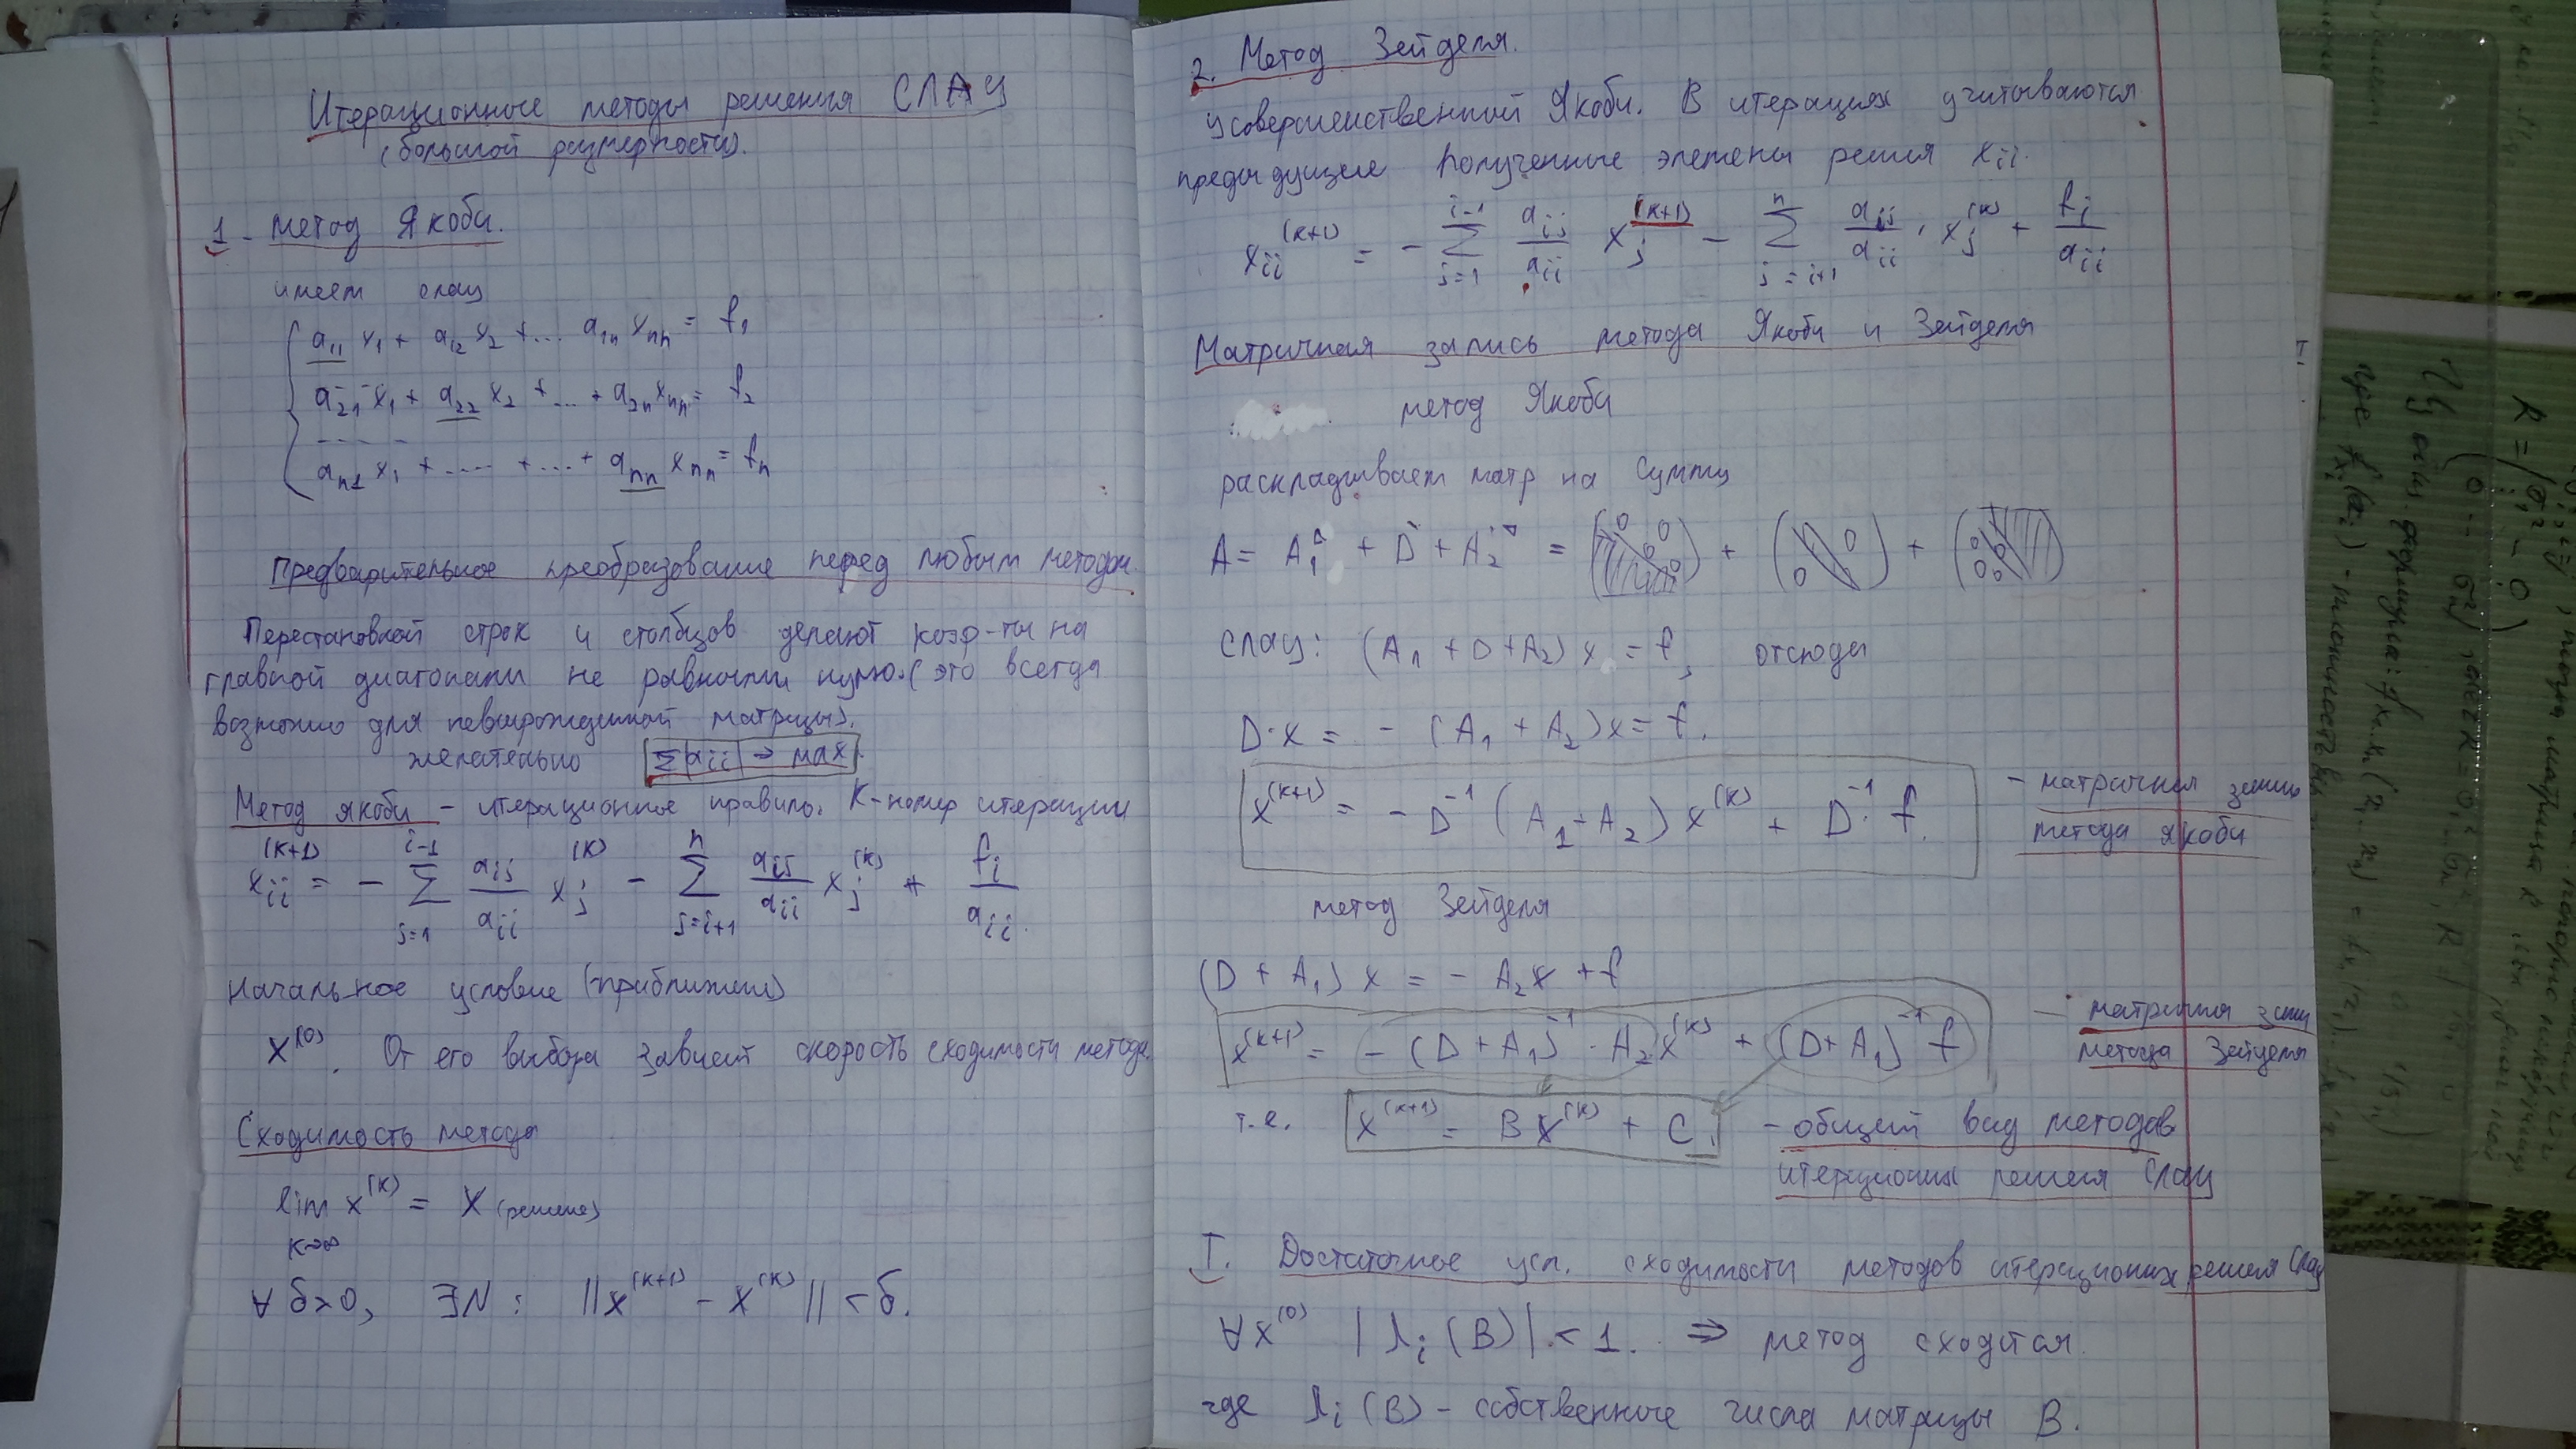 Итерационные методы решения СЛАУ
(большой размерности).
1 - Метод Якоби.
имеем слау
{ a₁₁ x₁ + a₁₂ x₂ + ... a₁ₙ xₙₙ = f₁
{ a₂₁ x₁ + a₂₂ x₂ + ... + a₂ₙ xₙₙ = f₂
- - - -
aₙ₂ x₁ + .... + ... + aₙₙ xₙₙ = fₙ
Предварительное преобразование перед любым методом.
Перестановкой строк и столбцов делают коэф-ты на
главной диагонали не равными нулю. (это всегда
возможно для невырожденной матрицы).
желательно Σ|aᵢᵢ| ⇒ max
Метод Якоби - итерационное правило, K-номер итерации
xᵢᵢ⁽ᵏ⁺¹⁾ = - Σ_{j=1}^{i-1} aᵢⱼ/aᵢᵢ xⱼ⁽ᵏ⁾ - Σ_{j=i+1}^{n} aᵢⱼ/aᵢᵢ xⱼ⁽ᵏ⁾ + fᵢ/aᵢᵢ.
Начальное условие (приближение)
x⁽⁰⁾. От его выбора зависит скорость сходимости метода.
Сходимость метода
lim_{k→∞} x⁽ᵏ⁾ = X (решение)
∀ δ>0, ∃N : ||x⁽ᵏ⁺¹⁾ - x⁽ᵏ⁾|| < δ.
2. Метод Зейделя.
усовершенственный Якоби. В итерациях учитываются
предыдущие полученные элементы решения xᵢᵢ.
xᵢᵢ⁽ᵏ⁺¹⁾ = - Σ_{j=1}^{i-1} aᵢⱼ/aᵢᵢ xⱼ⁽ᵏ⁺¹⁾ - Σ_{j=i+1}^{n} aᵢⱼ/aᵢᵢ · xⱼ⁽ᵏ⁾ + fᵢ/aᵢᵢ
Матричная запись метода Якоби и Зейделя
метод Якоби
раскладываем матр на сумму
A = A₁ + D + A₂ =
слау: (A₁ + D + A₂) x = f, отсюда
D·x = - (A₁ + A₂) x = f.
x⁽ᵏ⁺¹⁾ = - D⁻¹ (A₁ + A₂) x⁽ᵏ⁾ + D⁻¹·f - матричная запись
метода Якоби
метод Зейделя
(D + A₁) x = - A₂ x + f
x⁽ᵏ⁺¹⁾ = - (D + A₁)⁻¹ · A₂ x⁽ᵏ⁾ + (D + A₁)⁻¹ f - матричная запись
метода Зейделя
т.е. x⁽ᵏ⁺¹⁾ = B x⁽ᵏ⁾ + C - общий вид методов
итерационных решения слау
T. Достаточное усл. сходимости методов итерационных решения слау
∀ x⁽⁰⁾ |λᵢ(B)| < 1. ⇒ метод сходится.
где λᵢ(B) - собственные числа матрицы B.